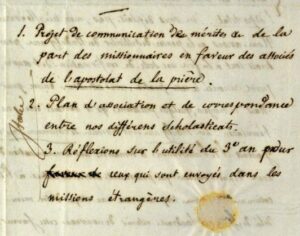 1. Projet de communication de mérites de la
part des missionnaires en faveur des associés
de l'apostolat de la prière.
2. Plan d'association et de correspondance
entre nos différens scholasticats.
3. Réflexions sur l'utilité du 3e an pour
ceux qui sont envoyés dans les
missions étrangères.